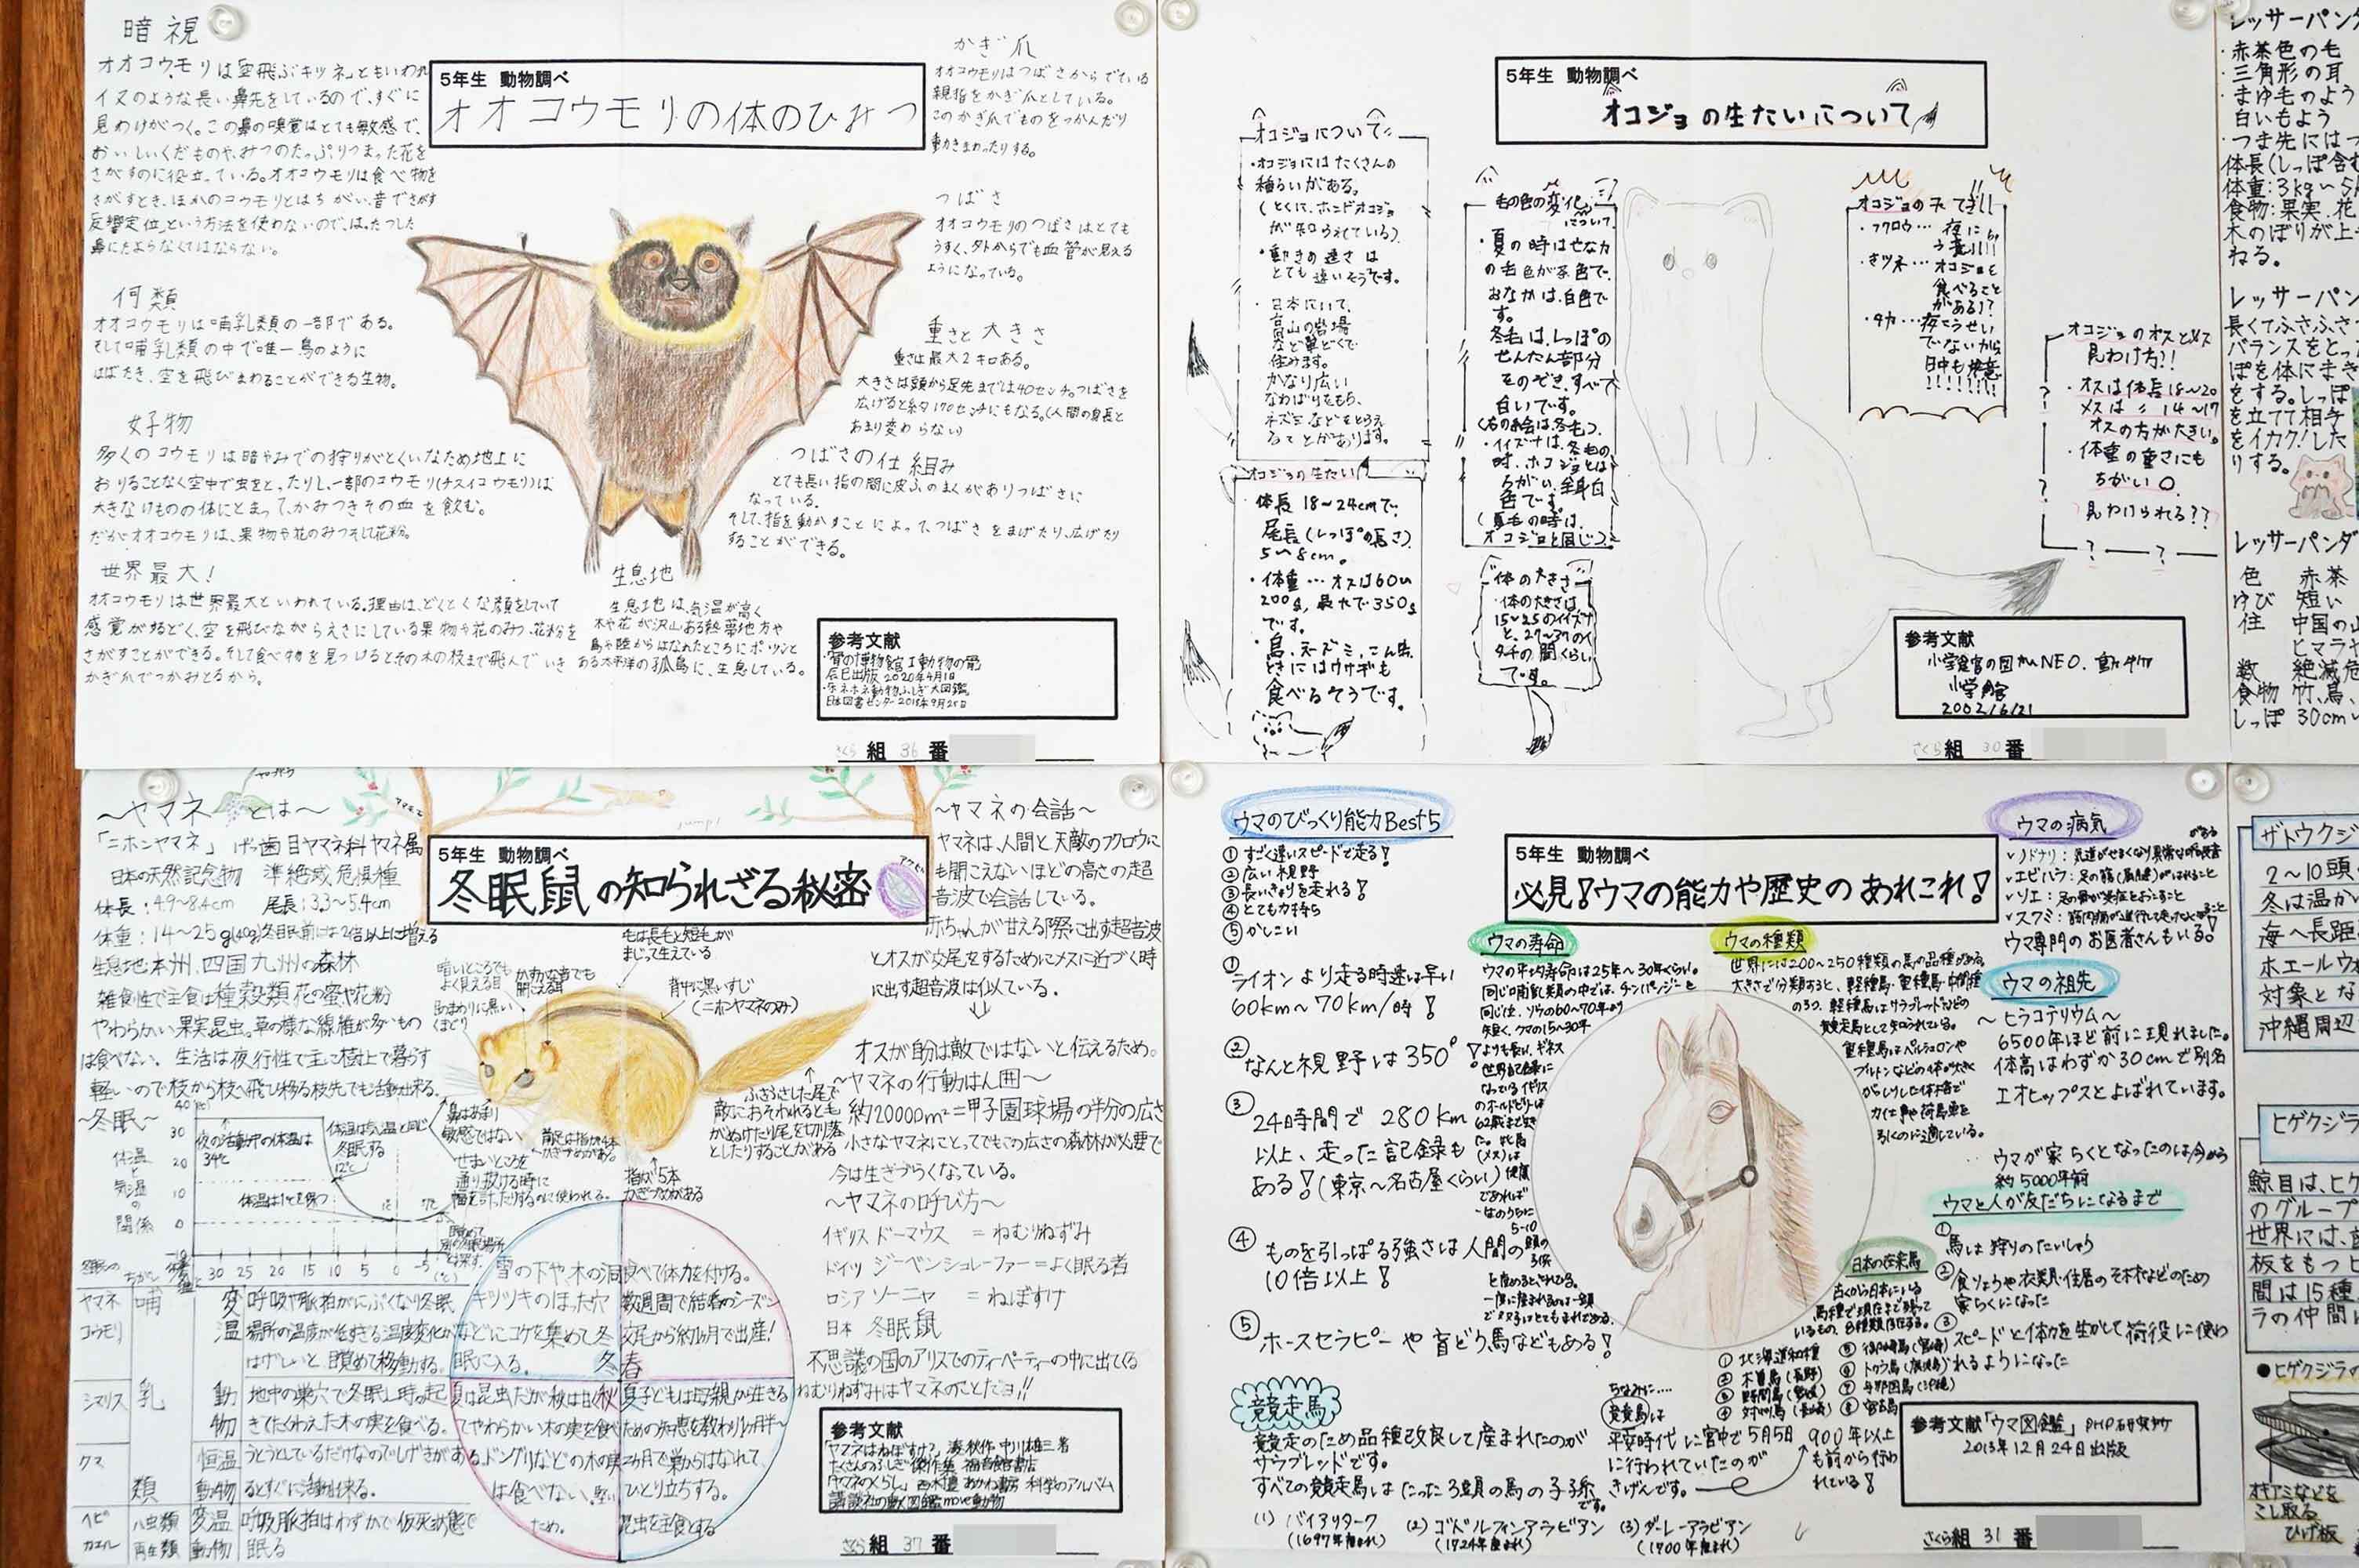 暗視
オオコウモリは「空飛ぶキツネ」ともいわれ
イヌのような長い鼻先をしているので、すぐに
見わけがつく。この鼻の嗅覚はとても敏感で、
おいしいくだものや、みつのたっぷりつまった花を
さがすのに役立っている。オオコウモリは食べ物を
さがすとき、ほかのコウモリとはちがい、音でさがす
反響定位という方法を使わないので、はったつした
鼻にたよらなくてはならない。
何類
オオコウモリは哺乳類の一部である。
そして哺乳類の中で唯一鳥のように
はばたき、空を飛びまわることができる生物。
好物
多くのコウモリは暗やみでの狩りがとくいなため地上に
おりることなく空中で虫をとったりし、一部のコウモリ(チスイコウモリ)は
大きなけものの体にとまって、かみつきその血を飲む。
だがオオコウモリは、果物や花のみつそして花粉。
世界最大!
オオコウモリは世界最大といわれている。理由は、どくとくな顔をしていて
感覚がするどく、空を飛びながらえさにしている果物や花のみつ、花粉を
さがすことができる。そして食べ物を見つけるとその木の枝まで飛んでいき
かぎ爪でつかみとるから。
5年生 動物調べ
オオコウモリの体のひみつ
かぎ爪
オオコウモリはつばさからでている
親指をかぎ爪としている。
このかぎ爪でものをつかんだり
動きまわったりする。
つばさ
オオコウモリのつばさはとても
うすく、外からでも血管が見える
ようになっている。
重さと大きさ
重さは最大2キロある。
大きさは頭から足先までは40センチ。つばさを
広げると約170センチにもなる。(人間の身長と
あまり変わらない)
つばさの仕組み
とても長い指の間に皮ふのまくがありつばさに
なっている。
そして、指を動かすことによって、つばさをまげたり、広げたり
することができる。
生息地
生息地は、気温が高く
木や花が沢山ある熱帯地方や
島や陸からはなれたところにポツンと
ある太平洋の孤島に、生息している。
参考文献
・骨の博物館 1 動物の骨
辰巳出版 2020年4月1日
・ホネホネ動物ふしぎ大図鑑
日本図書センター 2018年9月25日
さくら組 36番
5年生 動物調べ
オコジョの生たいについて
オコジョについて
・オコジョにはたくさんの
種るいがある。
(とくに、ホンドオコジョ
が知られている)
・動きの速さは
とても速いそうです。
・日本にいて、
高山の岩場
など草どくで
住みます。
かなり広い
なわばりをもち、
ネズミなどをとらえ
ることがあります。
オコジョの生たい
・体長 18〜24cmで、
尾長(しっぽの長さ)
5〜8cm。
・体重…オスは60〜
200g、最大で350g
です。
・鳥、ネズミ、こん虫、
ときにはウサギも
食べるそうです。
毛の色の変化
について
・夏の時はせなか
の毛色が茶色で、
おなかは、白色で
す。
冬毛は、しっぽの
せんたん部分
をのぞき、すべて
白いです。
(右のお絵は冬毛)
・イイズナは、冬毛の
時、オコジョとは
ちがい、全身白
色です。
(夏毛の時は、
オコジョと同じ)
体の大きさ
・体の大きさは、
15〜25のイイズナ
と、27〜37のイ
タチの間くらい
です。
オコジョの天てき!!
・フクロウ…夜に
注意!!!!
・きツネ…オコジョを
食べること
がある!?
・タカ…夜こうせい
でないから
日中も注意
!!!!!!!!
オコジョのオスとメス
見わけ方!!
・オスは体長18〜20
メスは 〃 14〜17
オスの方が大きい。
・体重の重さにも
ちがい○
見わけられる??
参考文献
小学館の図かんNEO. 動物
小学館
2002/6/21
さくら組 30番
レッサーパンダ
・赤茶色の毛
・三角形の耳
・まゆ毛のよう
白いもよう
・つま先にはつ
体長(しっぽ含む
体重:3kg〜5k
食物:果実、花
木のぼりが上
ねる。
レッサーパン
長くてふさふさ
バランスをとっ
ぽを体にまき
をする。しっぽ
を立てて相手
をイカク!した
りする。
レッサーパンダ
色 赤茶
ゆび 短い
住 中国の山
ヒマラヤ
数 絶滅危
食物 竹、鳥、
しっぽ 30cm
〜ヤマネとは〜
「ニホンヤマネ」 げっ歯目ヤマネ科ヤマネ属
日本の天然記念物 準絶滅危惧種
体長:4.9〜8.4cm 尾長:3.3〜5.4cm
体重:14〜25g(40g)冬眠前には2倍以上に増える
生息地本州、四国九州の森林
雑食性で主食は種穀類花の蜜や花粉
やわらかい果実昆虫。草の様な繊維が多いもの
は食べない、生活は夜行性で主に樹上で暮らす
軽いので枝から枝へ飛び移る枝先でも活動出来る。
〜冬眠〜
40
30
20
10
0
-10
体温と気温の関係
夜の活動中の体温は
34℃
体温は気温と同じ
冬眠する
12℃
体温は1℃を保つ
30 25 20 15 10 5 0 -5
(℃)
ヤマネ
コウモリ
シマリス
クマ
ヘビ
カエル
哺
乳
類
ハ虫類
両生類
変
温
動
物
恒温
動物
変温
動物
呼吸や脈拍がにぶくなり冬眠
場所の温度が低すぎる温度変化が
はげしいと、目覚めて移動する。
地中の巣穴で冬眠し時々起
きてたくわえた木の実を食べる。
うとうとしているだけなのでしげきがあ
るとすぐに活動出来る。
呼吸脈拍はわずかで仮死状態で
眠る
アケビ
jump!
5年生 動物調べ
冬眠鼠の知られざる秘密
毛は長毛と短毛が
まじって生えている
暗いところでも
よく見える目
かすかな音でも
聞こえる耳
目のまわりに黒い
くまどり
背中に黒いすじ
(ニホンヤマネのみ)
鼻はあまり
敏感ではない
せまいところを
通り抜ける時に
幅を計ったりするのに使われる。
前足は指が4本
かぎづめがある。
指が5本
かぎづめがある
ふさふさした尾で
敵におそわれると毛
がぬけたり尾を切り落
としたりすることがある
雪の下や、木の洞
キツツキのほった穴
などにコケを集めて冬
眠に入る。
冬
食べて体力を付ける。
数週間で結婚のシーズン
交尾から約1ヶ月で出産!
春
夏は昆虫だが秋は甘く
てやわらかい木の実を食べ
る、ドングリなどの木の実
は食べない、堅い
ため。
秋
夏
子どもは母親から生きる
ための知恵を教わり1ヶ月半〜
2ヶ月で巣からはなれて、
ひとり立ちする。
昆虫を主食とする
〜ヤマネの会話〜
ヤマネは、人間と天敵のフクロウに
も聞こえないほどの高さの超
音波で会話している。
赤ちゃんが甘える際に出す超音波
とオスが交尾をするためにメスに近づく時
に出す超音波は似ている。
オスが自分は敵ではないと伝えるため。
〜ヤマネの行動はん囲〜
約20000m²=甲子園球場の半分の広さ
小さなヤマネにとってでもこの広さの森林が必要で
今は生きづらくなっている。
〜ヤマネの呼び方〜
イギリス ドーマウス =ねむりねずみ
ドイツ ジーベンシュレーファー=よく眠る者
ロシア ソーニャ =ねぼすけ
日本 冬眠鼠
不思議の国のアリスでのティーパーティーの中に出てくる
ねむりねずみはヤマネのことだヨ!!
参考文献
「ヤマネはねぼすけ?」湊秋作 中川雄三著
たくさんのふしぎ傑作集 福音館書店
「ヤマネのくらし」西木豊 あかね書房 科学のアルバム
講談社の動く図鑑move動物
さくら組 37番
ウマのびっくり能力Best5
①すごく速いスピードで走る!
②広い視野
③長いきょりを走れる!
④とても力持ち
⑤かしこい
①
ライオンより走る時速は早い
60km〜70km/時!
②なんと視野は350°!
③24時間で 280km
以上、走った記録も
ある!(東京〜名古屋くらい)
④ものを引っぱる強さは人間の
10倍以上!
⑤ホースセラピーや盲どう馬などもある!
5年生 動物調べ
必見!ウマの能力や歴史のあれこれ!
ウマの寿命
ウマの平均寿命は25年〜30年くらい。
同じ哺乳類の中では、チンパンジーと
同じ位、ゾウの60〜70年より
短く、クマの15〜30年
よりも長い。ギネス
世界記録に
なっているイギリス
のオールドビリーは
62歳まで生き
た。
ウマの種類
世界には200〜250種類の馬の品種がある。
大きさで分類すると、軽種馬・重種馬・中間種
のうち、軽種馬はサラブレッドなどの
競走馬として知られている。
重種馬はペルシュロンや
ブルトンなどの体が大きく
がっしりした体格で
力仕事や荷馬車を
引くのに適している。
ウマの病気
✓ノドナリ:気道がせまくなり異常な呼吸音がある
✓エビハラ:足の筋(屈腱)がはれること
✓ソエ:足の骨が炎症をおこすこと
✓スクミ:筋肉痛が進行して走れなくなること
ウマ専門のお医者さんもいる!
ウマの祖先
〜ヒラコテリウム〜
6500年ほど前に現れました。
体高はわずか30cmで別名
エオヒップスとよばれています。
ウマが家ちくとなったのは今から
約5000年前
ウマと人が友だちになるまで
①馬は狩りのたいしょう
②食りょうや衣類・住居のそ材などのため
家ちくになった
③スピードと体力を生かして荷役に使わ
れるようになった
日本の在来馬
古くから日本にいる
馬種で現在まで残って
いるもの、8種類存在する。
①北海道和種
②木曽馬(長野)
③野間馬(愛媛)
④対州馬(長崎)
⑤御崎馬(宮崎)
⑥トカラ馬(鹿児島)
⑦与那国馬(沖縄)
⑧宮古馬
競走馬
競走のため品種改良して産まれたのが
サラブレッドです。
すべての競走馬はたった3頭の馬の子孫
です。
(1) バイアリターク
(1697年産まれ)
(2) ゴドルフィンアラビアン
(1724年産まれ)
(3) ダーレーアラビアン
(1700年産まれ)
ちなみに....
競馬は
平安時代に宮中で5月5日
に行われていたのが
きげんです。
900年以上
も前から行わ
れている!
参考文献「ウマ図鑑」PHP研究所
2013年12月24日出版
さくら組 31番
ザトウクジ
2〜10頭
冬は温か
海へ長距
ホエールウォ
対象とな
沖縄周辺
ヒゲクジラ
鯨目は、ヒゲ
のグループ
世界には、歯
板をもつヒ
間は15種
ラの仲間
●ヒゲクジラの
オキアミなどを
こし取る
ひげ板